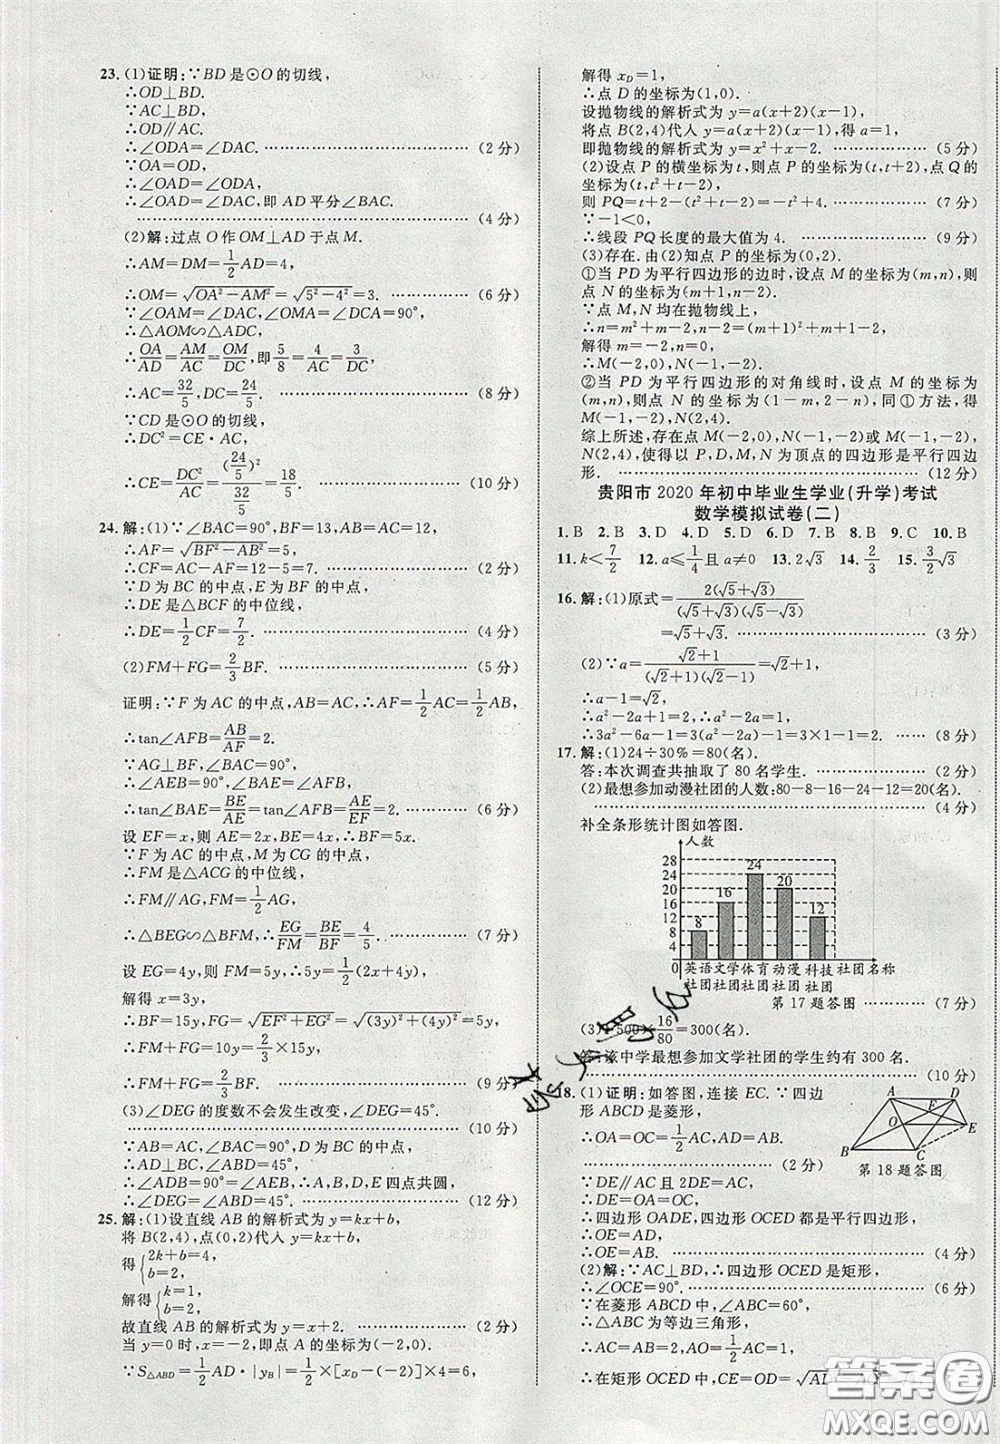 23. (1)证明:∵BD是⊙O的切线,
∴OD⊥BD.
∵AC⊥BD,
∴OD∥AC.
∴∠ODA=∠DAC. (2分)
∵OA=OD,
∴∠OAD=∠ODA,
∴∠OAD=∠DAC,即AD平分∠BAC.
(4分)
(2)解:过点O作OM⊥AD于点M.
∴AM=DM=1/2AD=4,
∴OM=√(OA²-AM²)=√(5²-4²)=3. (6分)
∵∠OAM=∠DAC,∠OMA=∠DCA=90°,
∴△AOM∽△ADC,
∴OA/AD=AM/AC=OM/DC,即5/8=4/AC=3/DC,
∴AC=32/5,DC=24/5. (8分)
∵CD是⊙O的切线,
∴DC²=CE·AC,
∴CE=DC²/AC=(24/5)²/(32/5)=18/5. (10分)
24. 解:(1)∵∠BAC=90°,BF=13,AC=AB=12,
∴AF=√(BF²-AB²)=5.
∴CF=AC-AF=12-5=7. (2分)
∵D为BC的中点,E为BF的中点,
∴DE是△BCF的中位线,
∴DE=1/2CF=7/2. (4分)
(2)FM+FG=2/3BF. (5分)
证明:∵F为AC的中点,AB=AC,∴AF=1/2AC=1/2AB,
∴tan∠AFB=AB/AF=2.
∵AG⊥BF,
∴∠AEB=90°,
∴tan∠BAE=BE/AE=tan∠AFB=AE/EF=2. (6分)
设EF=x,则AE=2x,BE=4x,∴BF=5x.
∵F为AC的中点,M为CG的中点,
∴FM是△ACG的中位线,
∴FM∥AG,FM=1/2AG,
∴△BEG∽△BFM,∴EG/FM=BE/BF=4/5. (7分)
设EG=4y,则FM=5y,∴5y=1/2(2x+4y),
解得x=3y,
∴BF=15y,FG=√(EF²+EG²)=√((3y)²+(4y)²)=5y,
∴FM+FG=10y=2/3×15y,
∴FM+FG=2/3BF. (9分)
(3)∠DEG的度数不会发生改变,∠DEG=45°.
(10分)
∵AB=AC,∠BAC=90°,D为BC的中点,
∴AD⊥BC,∠ABD=45°,
∴∠ADB=90°=∠AEB,∴A,B,D,E四点共圆,
∴∠DEG=∠ABD=45°. (12分)
25. 解:(1)设直线AB的解析式为y=kx+b,
将B(2,4),点(0,2)代入y=kx+b,
得{2k+b=4,
b=2,
解得{k=1,
b=2.
故直线AB的解析式为y=x+2. (2分)
当y=0时,x=-2,即点A的坐标为(-2,0).
∵S△ABD=1/2AD·|yB|=1/2×[xD-(-2)]×4=6,
解得xD=1,
∴点D的坐标为(1,0).
设抛物线的解析式为y=a(x+2)(x-1),
将点B(2,4)代入y=a(x+2)(x-1),得a=1,
即抛物线的解析式为y=x²+x-2. (5分)
(2)设点P的横坐标为t,则点P的坐标为(t,t+2),点Q的
坐标为(t,t²+t-2),
则PQ=t+2-(t²+t-2)=-t²+4. (7分)
∵-1<0,
∴线段PQ长度的最大值为4. (9分)
(3)存在.由(2)知点P的坐标为(0,2).
①当PD为平行四边形的边时,设点M的坐标为(m,n),则
点N的坐标为(m+1,n-2)
∵点M,N均在抛物线上,
∴n=m²+m-2,n-2=(m+1)²+m+1-2,
解得m=-2,n=0,
∴M(-2,0),N(-1,-2).
②当PD为平行四边形的对角线时,设点M的坐标为
(m,n),则点N的坐标为(1-m,2-n),同①方法,得
M(-1,-2),N(2,4).
综上所述,存在点M(-2,0),N(-1,-2)或M(-1,-2),
N(2,4),使得以P,D,M,N为顶点的四边形是平行四边
形. (12分)
贵阳市2020年初中毕业生学业(升学)考试
数学模拟试卷(二)
1. B 2. B 3. D 4. D 5. D 6. D 7. B 8. B 9. C 10. B
11. k<7/2 12. a≤1/4且a≠0 13. 2√3 14. 2/3 15. 3/2√3
16. 解:(1)原式=2(√5+√3)/((√5+√3)(√5-√3))
=√5+√3. (3分)
(2)∵a=(√2+1)/((√2+1)(√2-1))=√2+1,
∴a-1=√2,
∴a²-2a+1=2,∴a²-2a=1,
∴3a²-6a-1=3(a²-2a)-1=3×1-1=2. (8分)
17. 解:(1)24÷30%=80(名).
答:本次调查共抽取了80名学生. (2分)
(2)最想参加动漫社团的人数:80-8-16-24-12=20(名).
(4分)
补全条形统计图如答图.
人数
28
24
20
16
12
8
4
0
8 16 24 20 12
英语文学体育动漫科技 社团名称
社团社团社团社团社团
第17题答图 (7分)
(3)1 500×16/80=300(名).
答:该中学最想参加文学社团的学生约有300名.
(10分)
18. (1)证明:如答图,连接EC.∵四边
形ABCD是菱形,
∴OA=OC=1/2AC,AD=AB.
(2分)
A D O E B C
第18题答图
∵DE∥AC且2DE=AC,
∴DE=OA=OC,
∴四边形OADE,四边形OCED都是平行四边形,
∴OE=AD,
∴OE=AB. (4分)
(2)解:∵AC⊥BD,∴四边形OCED是矩形,
∴∠OCE=90°. (6分)
∵在菱形ABCD中,∠ABC=60°,
∴△ABC为等边三角形,
∴AD=AB=AC=2,AO=1/2AC=1.
∴在矩形OCED中,CE=OD=
答案圈
MXQE.COM